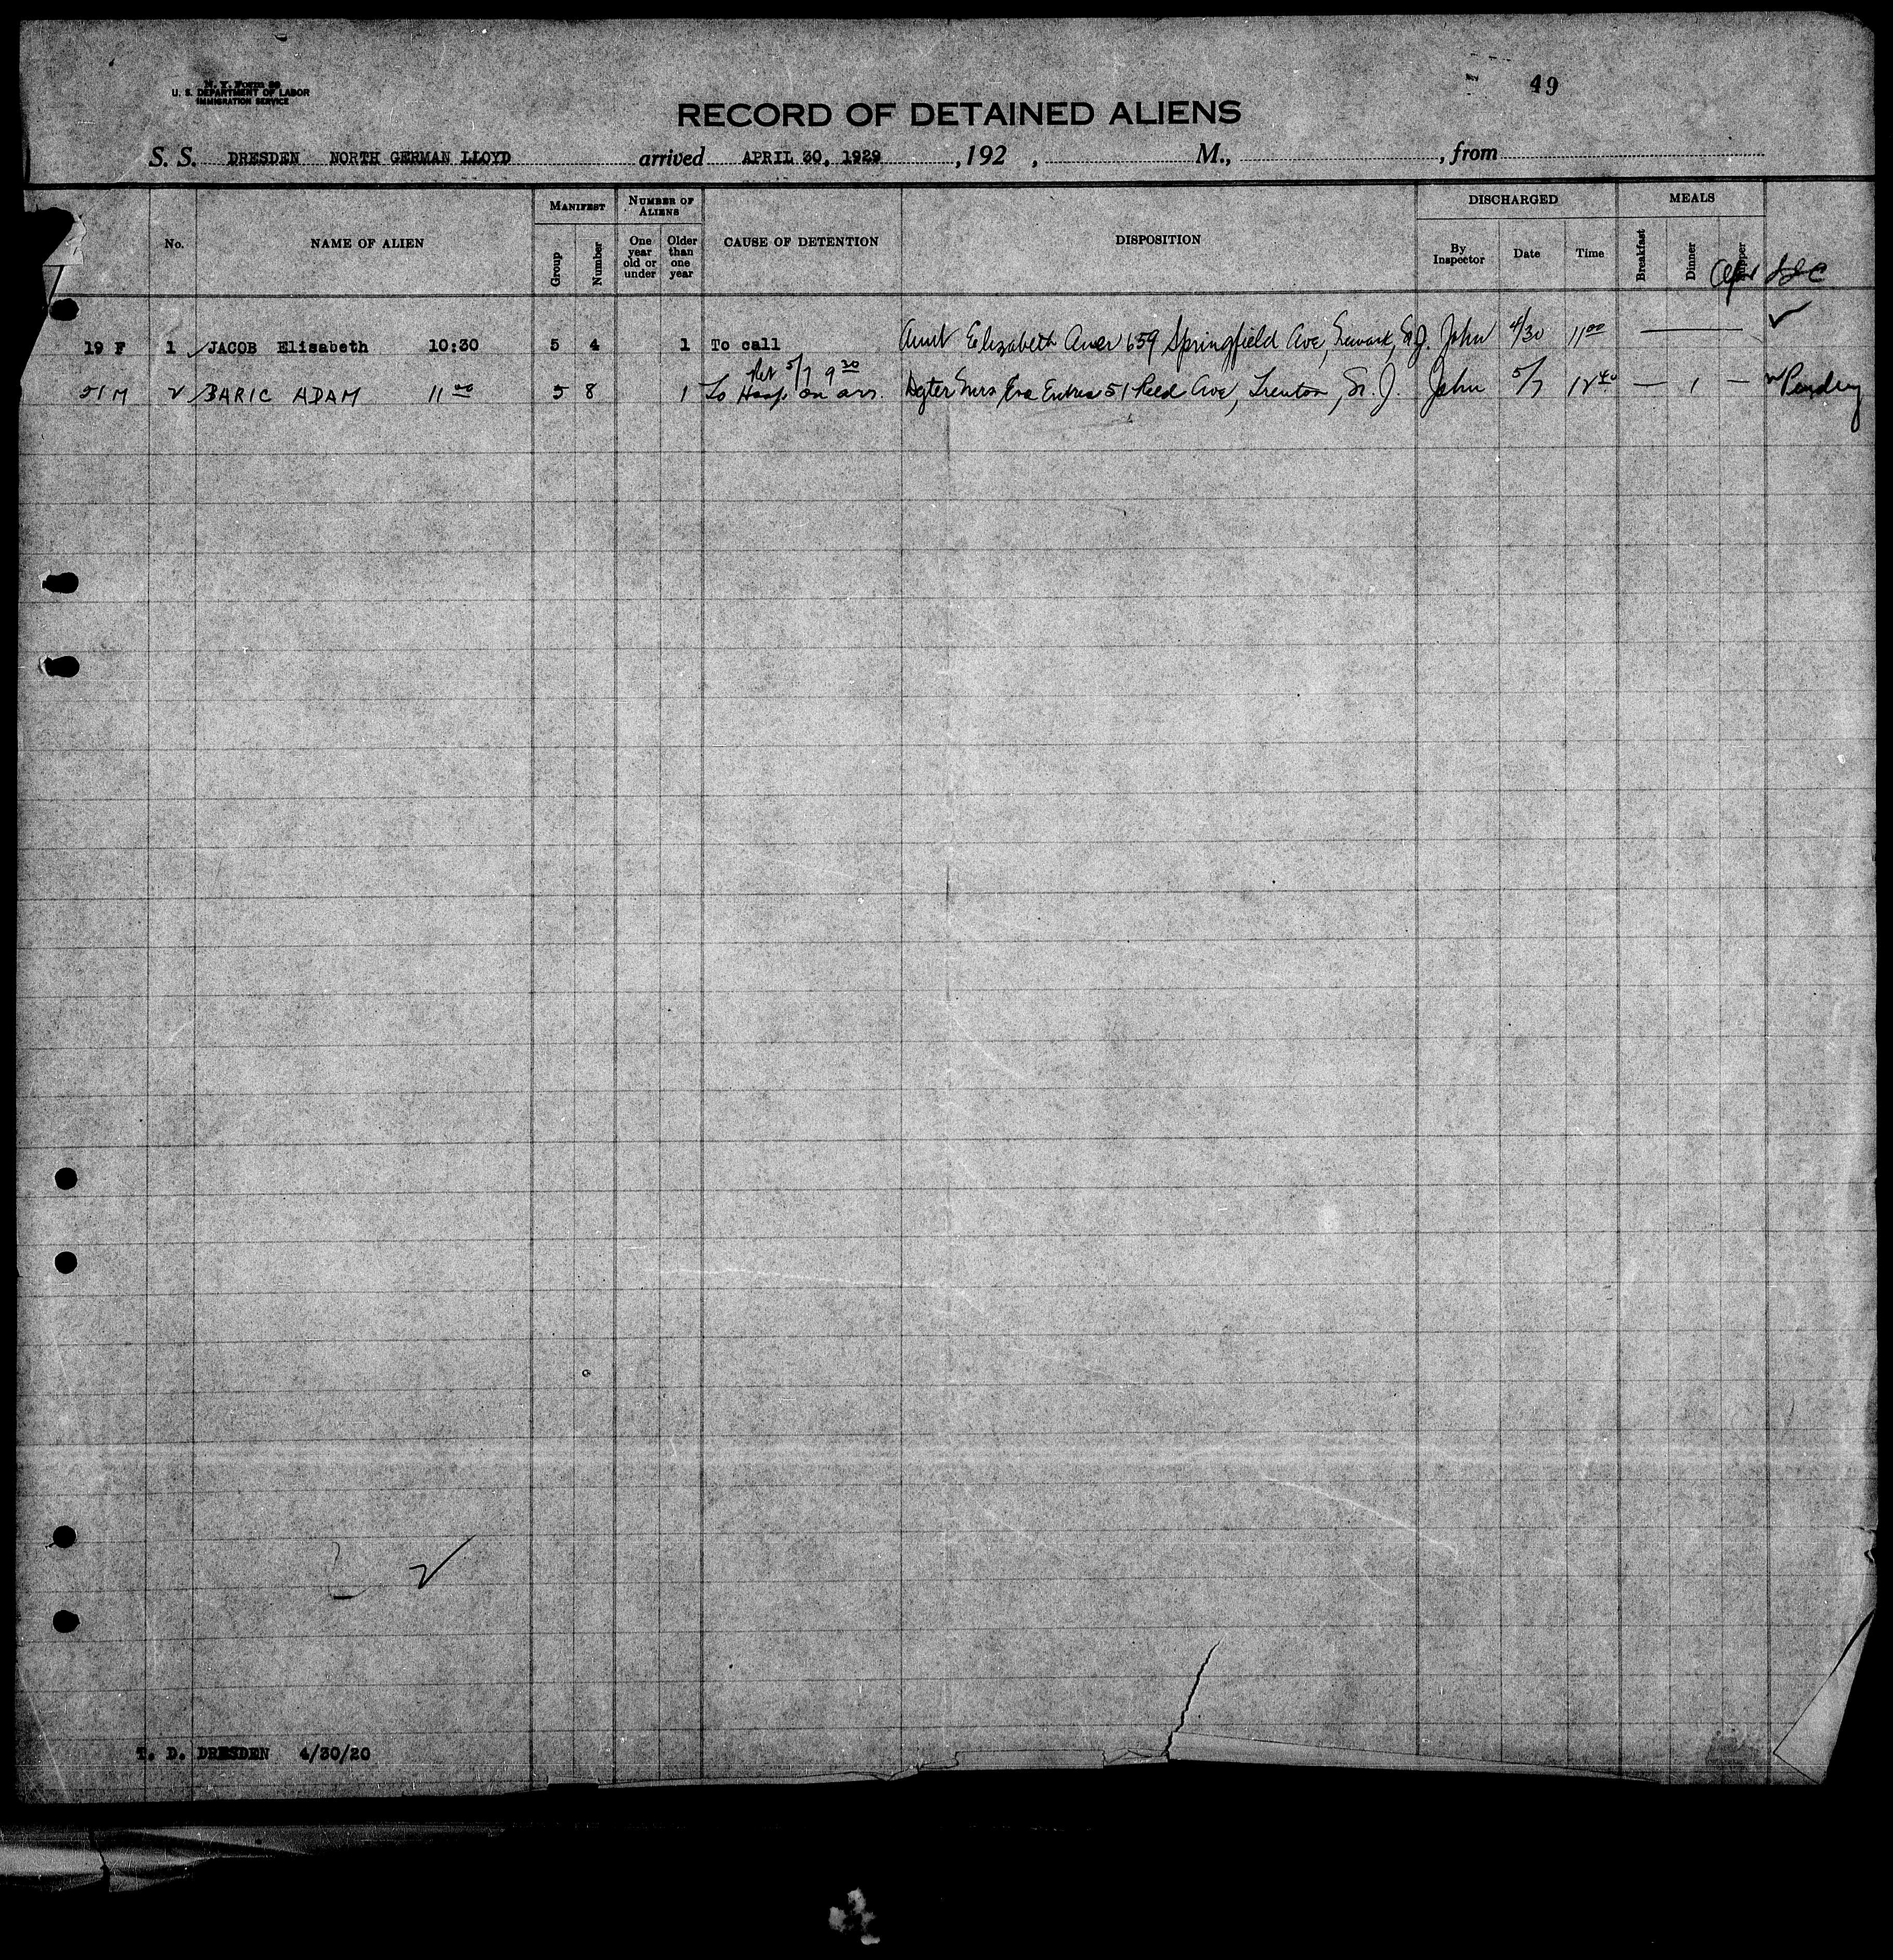 N. Y. Form 89
U. S. DEPARTMENT OF LABOR
IMMIGRATION SERVICE
49
RECORD OF DETAINED ALIENS
S. S. DRESDEN NORTH GERMAN LLOYD arrived APRIL 30, 1929, 192 , M., , from
MANIFEST NUMBER OF ALIENS DISCHARGED MEALS
No. NAME OF ALIEN Group Number One year old or under Older than one year CAUSE OF DETENTION DISPOSITION By Inspector Date Time Breakfast Dinner Supper
19 F 1 JACOB Elisabeth 10:30 5 4 1 To call Aunt Elizabeth Auer 659 Springfield Ave, Newark, N.J. John 4/30 11 00
Ret 5/7 9 30
51 M 2 BARIC ADAM 11 00 5 8 1 To Hosp on arr. Dgter Mrs Eva 51 Reed Ave, Trenton, N. J. John 5/7 12 40 — 1 — Pending
T. D. DRESDEN 4/30/20